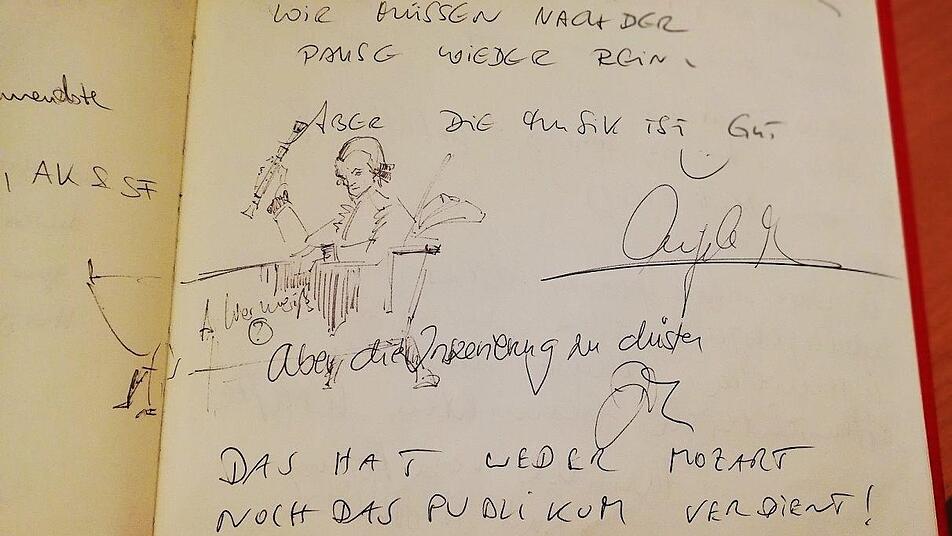 WIR MÜSSEN NACH DER
PAUSE WIEDER REIN.
ABER DIE MUSIK IST GUT
, AK & SF
Aber die Inszenierung zu düster
DAS HAT WEDER MOZART
NOCH DAS PUBLIKUM VERDIENT!